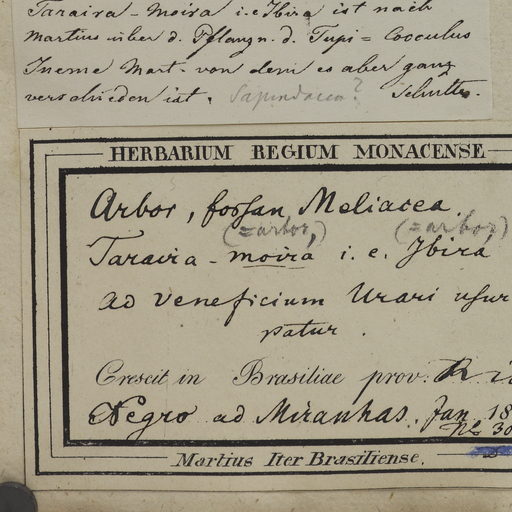 Taraira-moira i.e Ibira ist nach
Martius über d. Pflanzn. d. Tupi = Cocculus
Ineme Mart. von dem es aber ganz
verschieden ist. Sapindacea? Schultes.
HERBARIUM REGIUM MONACENSE
Arbor, forsan Meliacea.
(=arbor,) (=arbor)
Taraira-moira i. e. Ibirá
ad veneficium Urari usur
patur.
Crescit in Brasiliae prov. Ri
Negro ad Miranhas. Jan. 18
No 30
Martius Iter Brasiliense.